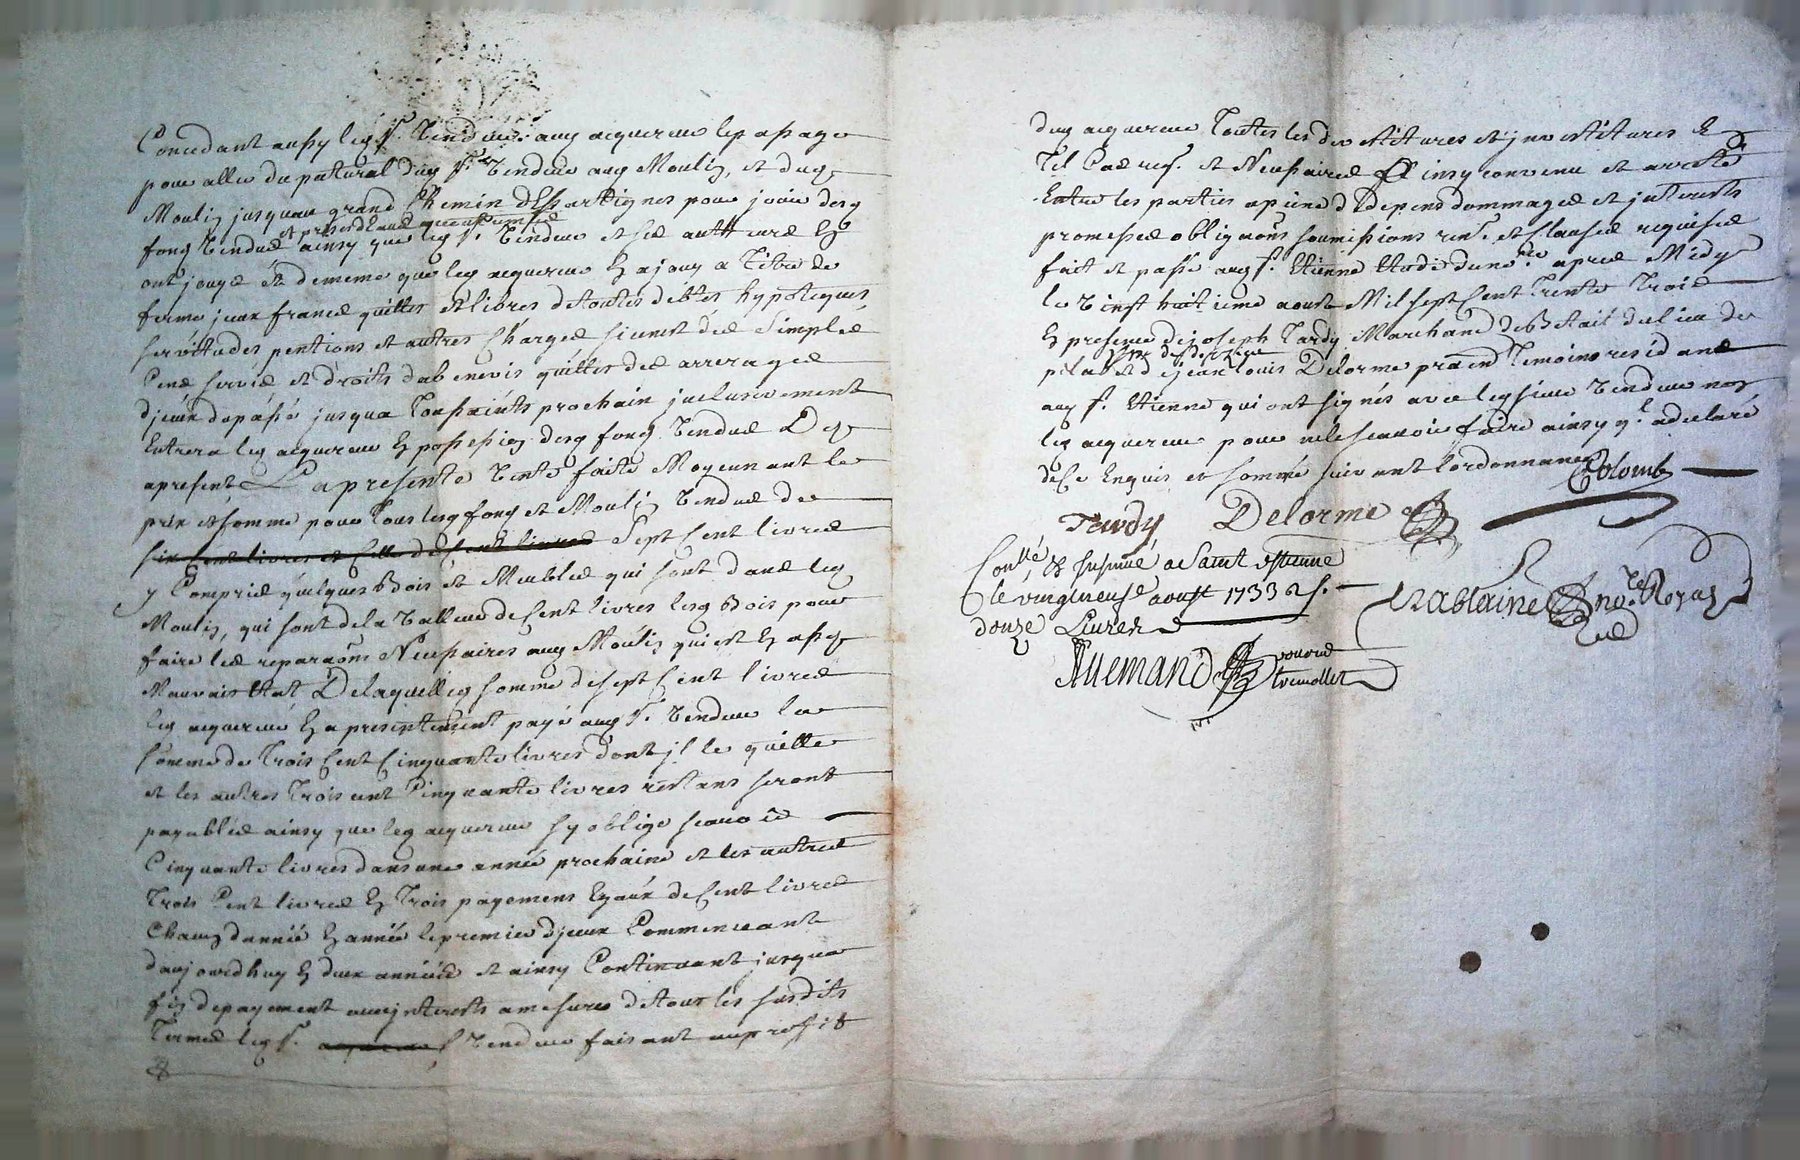 Concedant aussy led s.r vendeur aud acquereur le passage
pour aller du patural dud s.r vendeur aud Moulin, et dud
Moulin jusquau grand Chemin pour jouir desd
fond vendus ainsy que led s.r vendeur et ses autheurs En
ont jouyé et dememe que led acquereur En a jouy a titre de
ferme jceux francs quittes et libres detoutes debtes hypoteques
servitudes pentions et autres Charges sinest des simples
Cens servis et droits dabenevis quittes des arrerages
djceux dupassé jusqua Toussaints prochain jnclusivement
Entrera led acquereur En possession desd fond vendus Des
apresent La presente Vente faite Moyennant le
prix et somme pour tous lesd fond et Moulin vendus de
six Cent livres et Celle de Cent livres Sept Cent livres
y Compris quelques Bois et Meubles qui sont dans led
Moulin, qui sont dela valleur de Cent livres lesd Bois pour
faire les reparaōns Necessaires aud Moulin qui est En assé
Mauvais Etat De laquelle somme de sept Cent livres
led acquereur En a presentement payé aud s.r vendeur la
somme de Trois Cent Cinquante livres dont jl le quitte
et les autres Trois cent Cinquante livres restans seront
payables ainsy que led acquereur sy oblige scavoir
Cinquante livres dans une année prochaine et les autres
Trois Cent livres En Trois payemens Egaux de Cent livres
Chacun dannée En année le premier djceux Commenceant
daujourdhuy En deux années et ainsy Continuant jusqua
fin depayement avec jnterests amesure detous les susdits
Termes led s.r acquereur vendeur faisant au proffit
dud acquereur Toutes les devestitures et jnvestitures En
Tel Cas req. et Necessaires Ainsy convenu et arresté
Entre les parties apeine de depens dommages et jnterests
promesses obligaōns soumissions ren. et Clauses requises
fait et passé aud s.t Etienne Etude du no.re apres Midy
le vingt huitieme aoust Mil sept Cent Trente Trois
En presence de joseph Tardy Marchand du lieu de
et s.r jean louis Delorme pratn Temoins residans
aud s.t Etienne qui ont signés avec led sieur vendeur non
led acquereur pour ne le scavoir faire ainsy q.l a declaré
de Ce Enquis et sommé suivant lordonnance Colomb
Tardy Delorme
Con.llé & jnsinué a Saint Estienne
le vingtneuf aoust 1733 R s.
douze Livres
Rablaine no.re Royal
Allemand